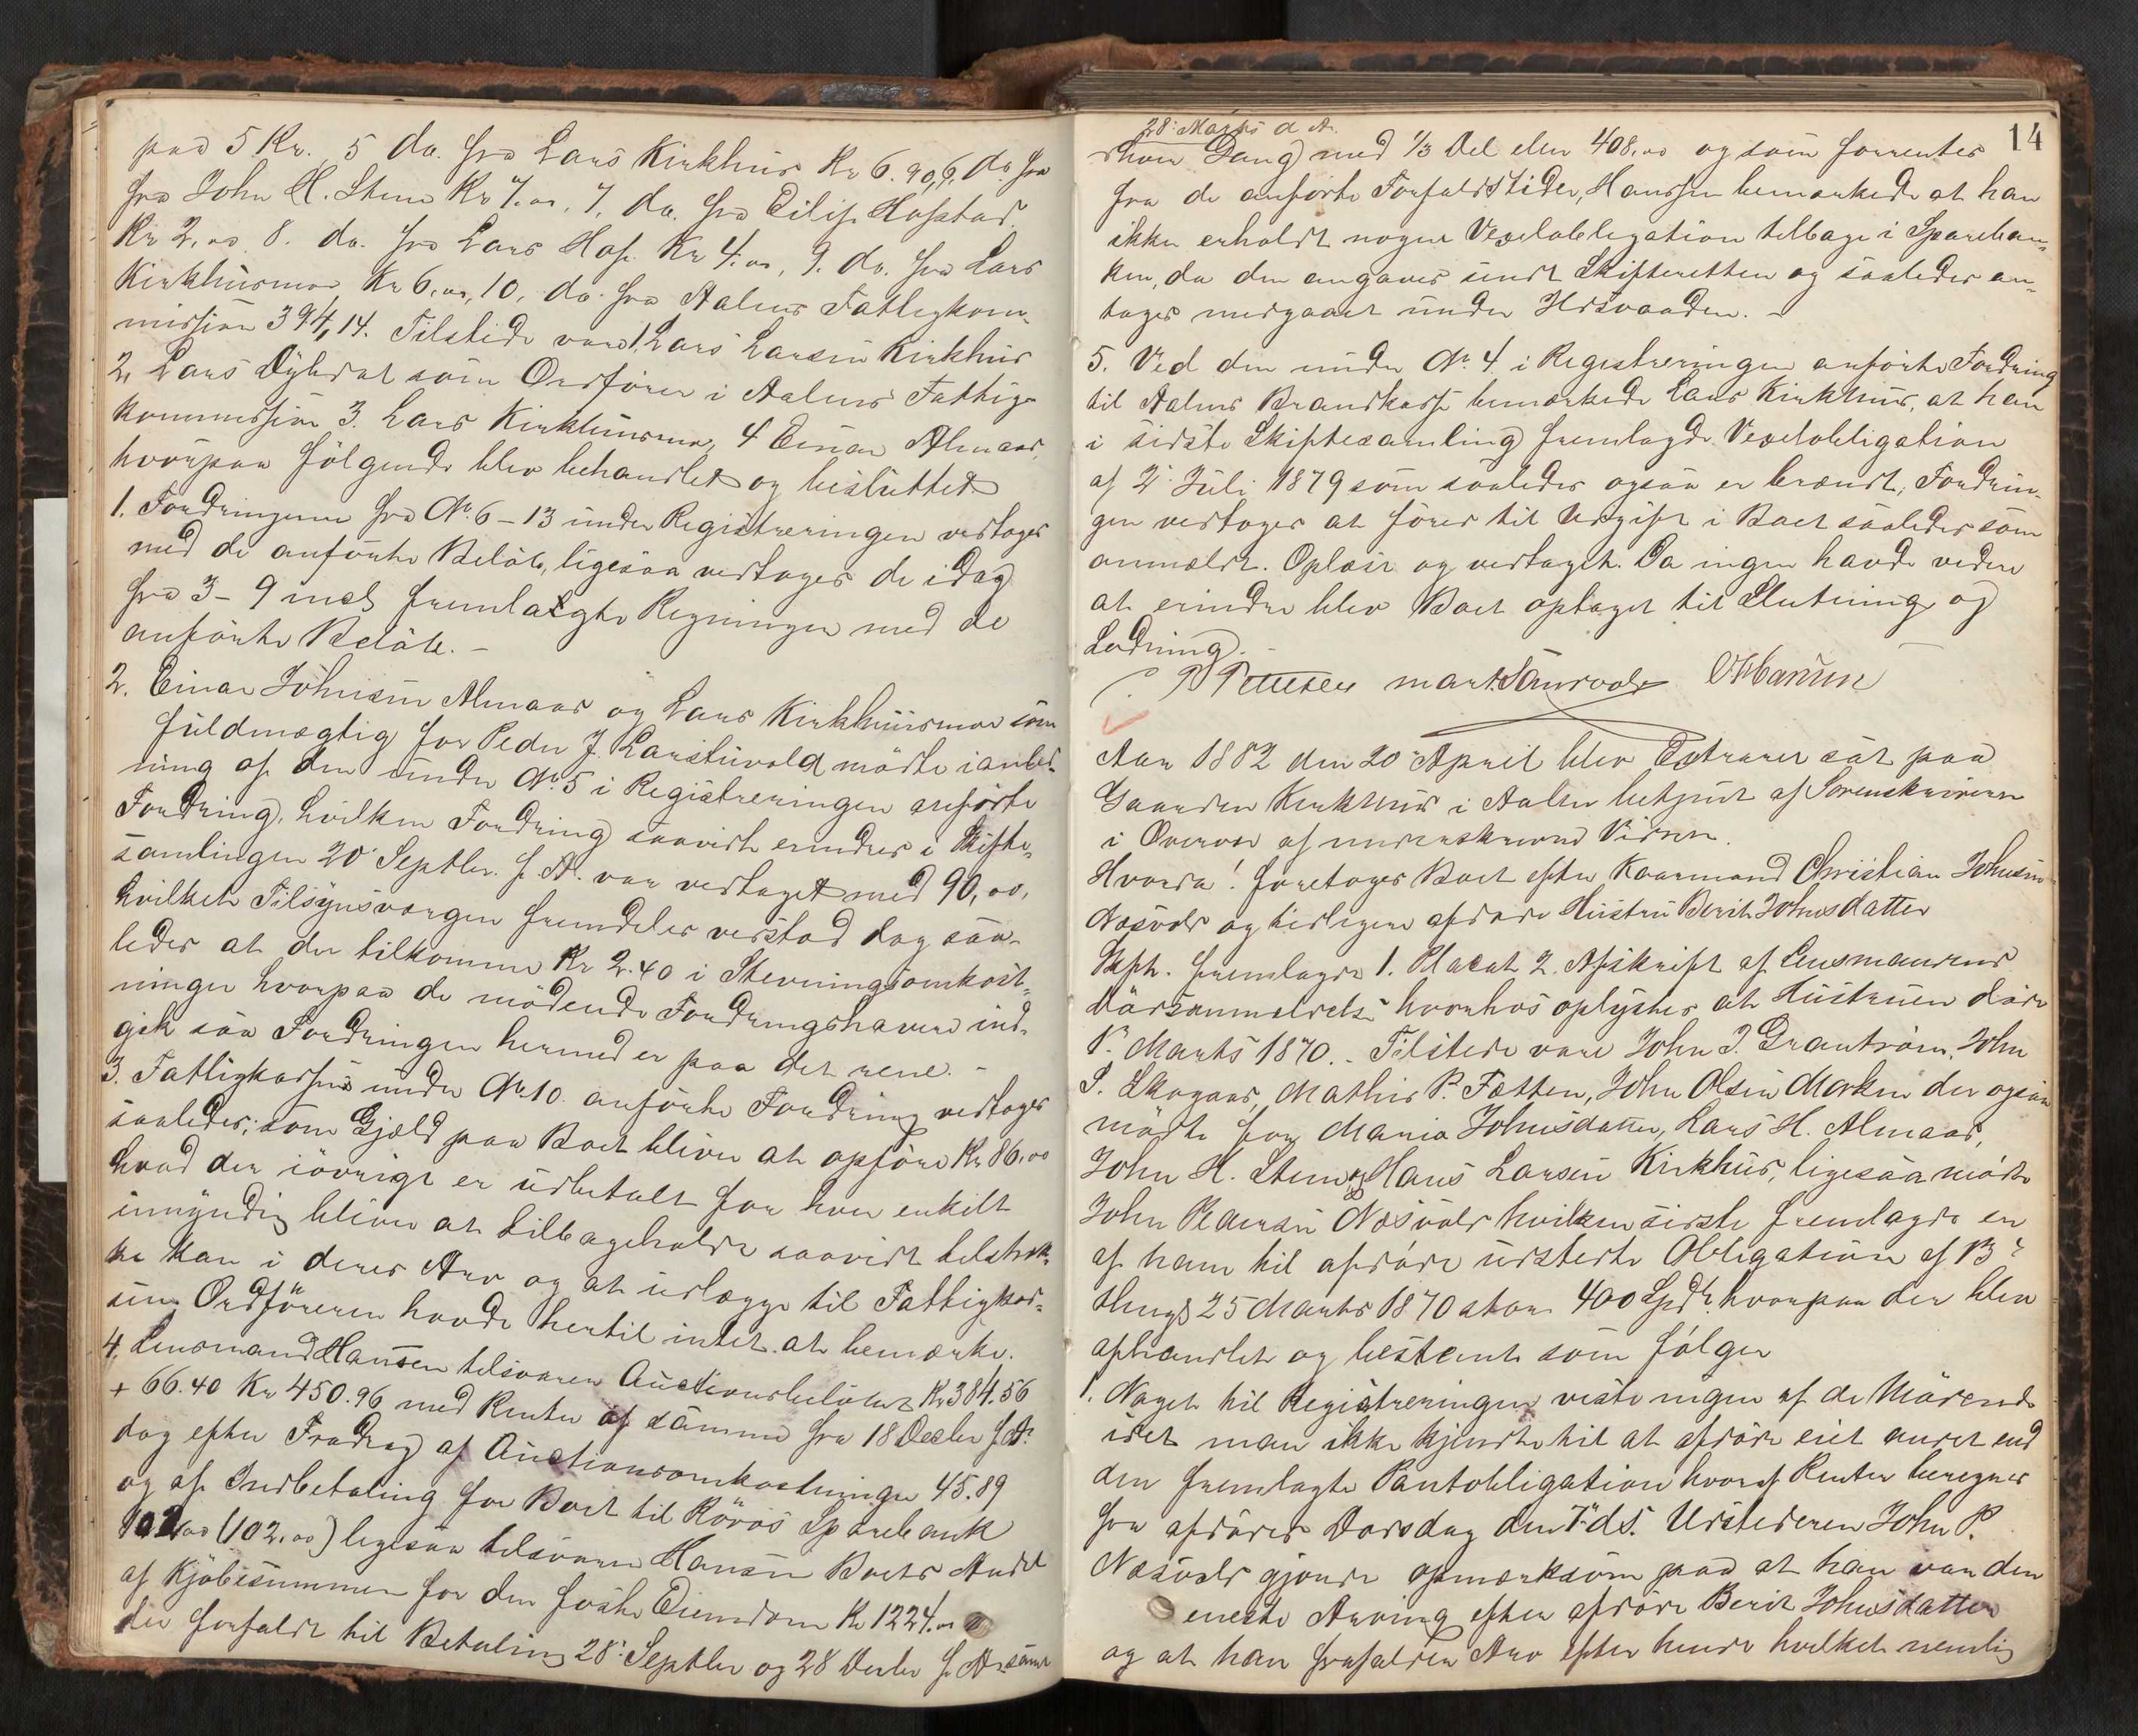 paa 5 Kr. 5 do. fra Lars Kirkhus Kr 6.90, 6, do fra
fra John H. Steen Kr 7.00, 7, do. fra Eilif Hofstad
Kr 2.00 8. do. fra Lars Hof. Kr 4.00, 9. do. fra Lars
Kirkhusmo Kr 6.00, 10, do. fra Aalens Fattigkom-
mission 394,14. Tilstede vare 1, Lars Larsen Kirkhus
2, Lars Dyhret som Ordfører i Aalens Fattig-
kommission 3. Lars Kirkhusmo, 4 Einar Almaas,
hvorpaa følgende blev behandlet og besluttet
1. Fordringerne fra No. 6-13 under Registreringen vedtages
med de anførte Beløb, ligesaa vedtages de idag
fra 3-9 incl fremlagte Regninger med de
anførte Beløb. -
2. Einar Johnsen Almaas og Lars Kirkhusmo som
fuldmægtig for Peder J. Larstuvold mødte i anled-
ning af den under No. 5 i Registreringen anførte
Fordring, hvilken Fordring saavidt erindres i Skifte-
samlingen 20' Septbr. f. A. var vedtaget med 90,00,
hvilket Tilsynsværgen fremdeles vedstod dog saa-
ledes at der tilkomme Kr 2.40 i Stevningsomkost-
ninger hvorpaa de mødende Fordringshavere ind-
gik saa Fordringen hermed er paa det rene. -
3. Fattigkassens under No. 10. anførte Fordring vedtages
saaledes: som Gjæld paa Boet bliver at opføre Kr 86.00
hvad der iøvrigt er udbetalt for hver enkelt
umyndig bliver at tilbageholde saavidt tilstræk-
ke kan i deres Arv og at udlægge til Fattigkas-
sen. Ordføreren havde hertil intet at bemærke.
4. Lensmand Hansen tilsvarer Auctionsbeløbet Kr 384.56
+ 66.40 Kr 450.96 med Renter af samme fra 18 Decbr f. A.
dog efter Fradrag af Auctionsomkostninger 45.89
og af Indbetaling for Boet til Röros Sparebank
102.00 (102.00) ligesaa tilsvarer Hansen Boets Andel
af Kjøbesummen for den faste Eiendom Kr 1224.00
der forfaldt til Betaling 28' Septbr og 28 Decbr f. A. samt
14
28' Marts d. A.
(hver Gang) med 1/3 Del eller 408.00 og som forrentes
fra de anførte Forfaldstider, Hansen bemærkede at han
ikke erholdt nogen Vexelobligation tilbage i Spareban-
ken, da den angaves sendt Skifteretten og saaledes an-
tages medgaaet under Ildsvaaden. -
5. Ved den under No. 4 i Registreringen anførte Fordring
til Aalens Brandkasse bemærkede Lars Kirkhus, at han
i sidste Skiftesamling fremlagde Vexelobligation
af 2' Juli 1879 som saaledes ogsaa er brændt, Fordrin-
gen vedtages at føres til Udgift i Boet saaledes som
anmeldt. Oplæst og vedtaget. Da ingen havde videre
at erindre blev Boet optaget til Slutning og
Lodning. -
P Pettersen O Hansen
Aar 1882 den 20 April blev Extraret sat paa
Gaarden Kirkhus i Aalen betjent af Sorenskriveren
i Overvær af underskrevne Vidner.
Hvorda! foretoges Boet efter Kaarmand Christian Johnsen
Næsvold og tidligere afdøde Hustru Berit Johnsdatter
Skft. fremlagde 1. Placat 2. Afskrift af Lensmandens
Dødsanmeldelse hvorhos oplystes at Hustruen døde
1' Marts 1870. - Tilstede vare John J. Grantrøen, John
S. Skogaas, Mathis P. Tætten, John Olsen Morken der ogsaa
mødte for Maria Johnsdatter, Lars H. Almaas,
John H. Steen og Hans Larsen Kirkhus, ligesaa mødte
John Pedersen Næsvold hvilken sidste fremlagde en
af ham til afdøde udstedt Obligation af 13'
thingl 25 Marts 1870 stor 400 Spdl hvorpaa der blev
afhandlet og bestemt som følger
1. Noget til Registreringen vidste ingen af de Mødende
idet man ikke kjendte til at afdøde eiet andet end
den fremlagte Pantobligation hvoraf Renter beregnes
fra afdødes Dødsdag den 7' ds. Udstederen John P.
Næsvold gjorde opmærksom paa at han var den
eneste Arving efter afdøde Berit Johnsdatter
og at han frafalder Arv efter hende hvilket nemlig